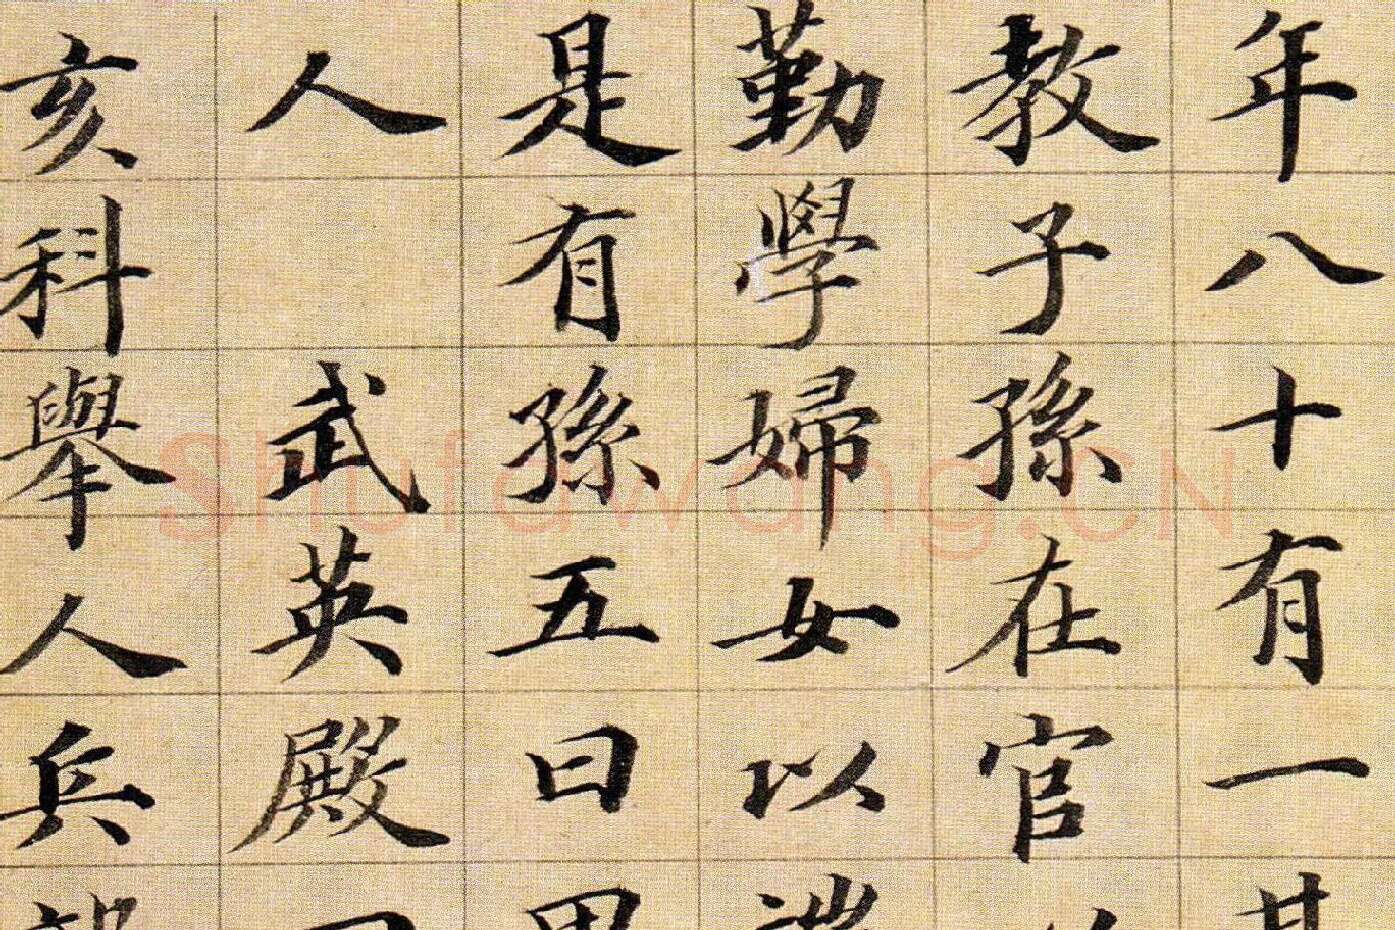 年八十有一其
教子孫在官
勤學婦女以
是有孫五曰
人 武英殿
亥科舉人兵部
Shufawang.CN